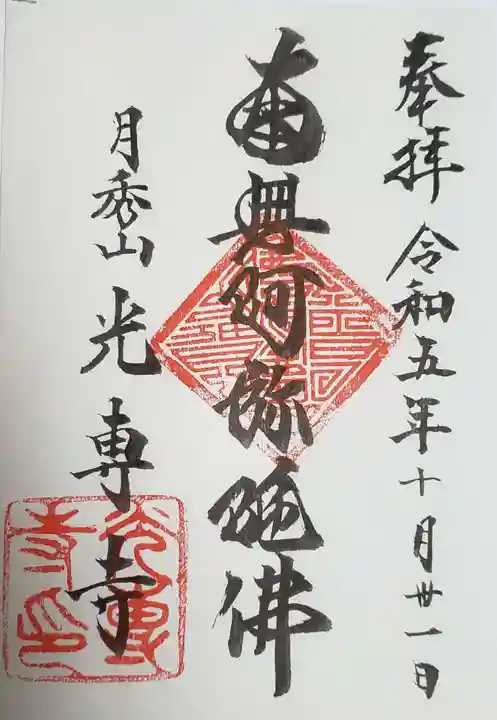 奉拝 令和五年十月卅一日
南無阿弥陀佛
月秀山 光専寺
光専寺印